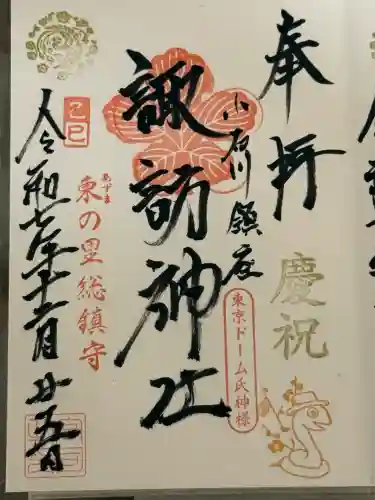 奉拝
慶祝
小石川鎮座
東京ドーム氏神様
諏訪神社
あずま
東の里総鎮守
乙巳
令和七年十二月廿五日